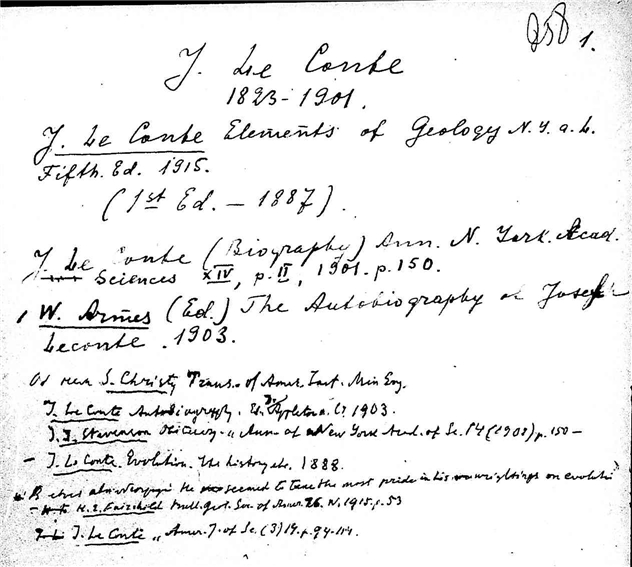 258 1.
J. Le Conte
1823-1901.
J. Le Conte Elements of Geology N. Y. a. L.
Fifth. Ed. 1915.
(1st Ed. – 1887).
J. Le Conte (Biography) Ann. N. York. Acad.
Sciences XIV, p. II, 1901. p. 150.
W. Armes (Ed.) The Autobiography of Josef
Leconte. 1903.
S. Christy Trans. of Amer. Inst. Min Eng.
J. Le Conte Autobiography. Ed. Appleton a. C° 1903.
J. J. Stevenson „ Ann. of New York Acad. of Sc. 14 (1902) p. 150 –
– J. Le Conte. Evolution. The history etc. 1888.
He seemed to take the most pride in his wrightings on evoluti
H. L. Fairchild Bull. Geol. Soc. of Amer. 26. N. 1915. p. 53
J. Le Conte „ Amer. J. of Sc. (3) 14. p. 99-114.